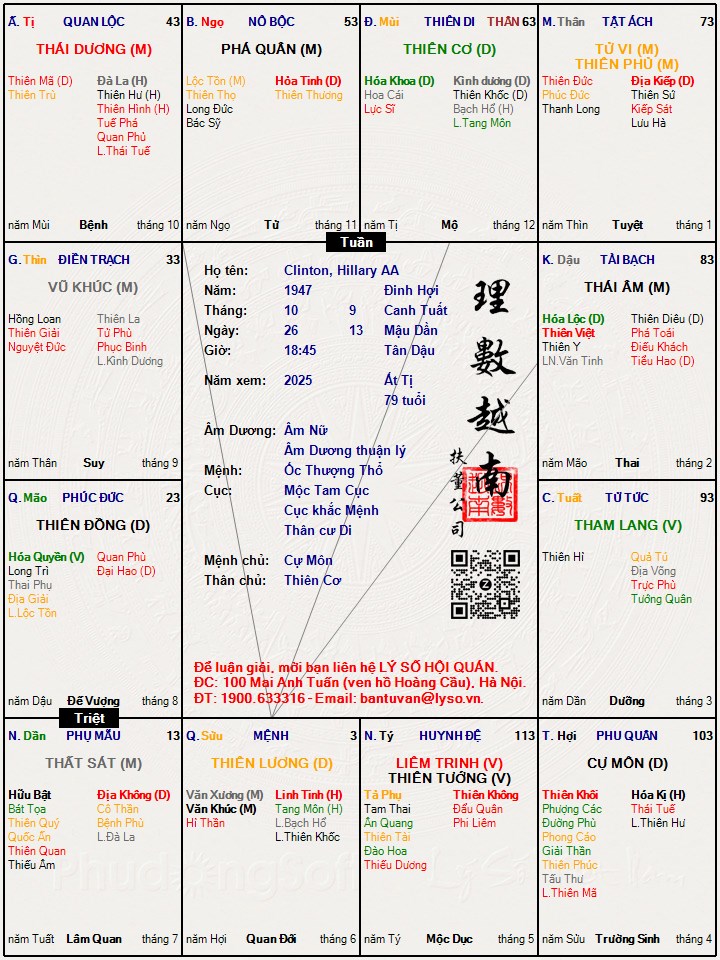 Ấ. Tị QUAN LỘC 43
THÁI DƯƠNG (M)
Thiên Mã (D) Đà La (H)
Thiên Trù Thiên Hư (H)
Thiên Hình (H)
Tuế Phá
Quan Phủ
L.Thái Tuế
năm Mùi Bệnh tháng 10
B. Ngọ NÔ BỘC 53
PHÁ QUÂN (M)
Lộc Tồn (M) Hỏa Tinh (D)
Thiên Thọ Thiên Thương
Long Đức
Bác Sỹ
năm Ngọ Tử tháng 11
Đ. Mùi THIÊN DI THÂN 63
THIÊN CƠ (D)
Hóa Khoa (D) Kình dương (D)
Hoa Cái Thiên Khốc (D)
Lực Sĩ Bạch Hổ (H)
L.Tang Môn
năm Tị Mộ tháng 12
M. Thân TẬT ÁCH 73
TỬ VI (M)
THIÊN PHỦ (M)
Thiên Đức Địa Kiếp (D)
Phúc Đức Thiên Sứ
Thanh Long Kiếp Sát
Lưu Hà
năm Thìn Tuyệt tháng 1
Tuần
G. Thìn ĐIỀN TRẠCH 33
VŨ KHÚC (M)
Hồng Loan Thiên La
Thiên Giải Tử Phù
Nguyệt Đức Phục Binh
L.Kình Dương
năm Thân Suy tháng 9
Họ tên: Clinton, Hillary AA
Năm: 1947 Đinh Hợi
Tháng: 10 9 Canh Tuất
Ngày: 26 13 Mậu Dần
Giờ: 18:45 Tân Dậu
Năm xem: 2025 Ất Tị
79 tuổi
Âm Dương: Âm Nữ
Âm Dương thuận lý
Mệnh: Ốc Thượng Thổ
Cục: Mộc Tam Cục
Cục khắc Mệnh
Thân cư Di
Mệnh chủ: Cự Môn
Thân chủ: Thiên Cơ
理數越南
扶董公司
Để luận giải, mời bạn liên hệ LÝ SỐ HỘI QUÁN.
ĐC: 100 Mai Anh Tuấn (ven hồ Hoàng Cầu), Hà Nội.
ĐT: 1900.633316 - Email: bantuvan@lyso.vn.
K. Dậu TÀI BẠCH 83
THÁI ÂM (M)
Hóa Lộc (D) Thiên Diêu (D)
Thiên Việt Phá Toái
Thiên Y Điếu Khách
LN.Văn Tinh Tiểu Hao (D)
năm Mão Thai tháng 2
Q. Mão PHÚC ĐỨC 23
THIÊN ĐỒNG (D)
Hóa Quyền (V) Quan Phù
Long Trì Đại Hao (D)
Thai Phụ
Địa Giải
L.Lộc Tồn
năm Dậu Đế Vượng tháng 8
C. Tuất TỬ TỨC 93
THAM LANG (V)
Thiên Hỉ Quả Tú
Địa Võng
Trực Phù
Tướng Quân
năm Dần Dưỡng tháng 3
Triệt
N. Dần PHỤ MẪU 13
THẤT SÁT (M)
Hữu Bật Địa Không (D)
Bát Tọa Cô Thần
Thiên Quý Bệnh Phù
Quốc Ấn L.Đà La
Thiên Quan
Thiếu Âm
năm Tuất Lâm Quan tháng 7
Q. Sửu MỆNH 3
THIÊN LƯƠNG (D)
Văn Xương (M) Linh Tinh (H)
Văn Khúc (M) Tang Môn (H)
Hỉ Thần L.Bạch Hổ
L.Thiên Khốc
năm Hợi Quan Đới tháng 6
N. Tý HUYNH ĐỆ 113
LIÊM TRINH (V)
THIÊN TƯỚNG (V)
Tả Phụ Thiên Không
Tam Thai Đẩu Quân
Ân Quang Phi Liêm
Thiên Tài
Đào Hoa
Thiếu Dương
năm Tý Mộc Dục tháng 5
T. Hợi PHU QUÂN 103
CỰ MÔN (D)
Thiên Khôi Hóa Kị (H)
Phượng Các Thái Tuế
Đường Phù L.Thiên Hư
Phong Cáo
Giải Thần
Thiên Phúc
Tấu Thư
L.Thiên Mã
năm Sửu Trường Sinh tháng 4